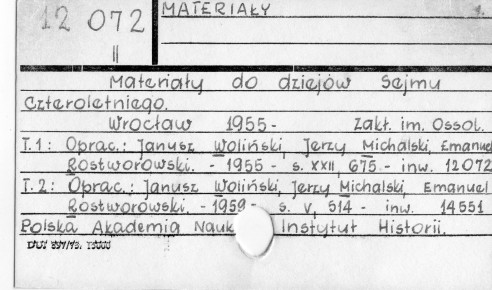 12 072
II
MATERIAŁY
1.
Materiały do dziejów Sejmu
Czteroletniego.
Wrocław 1955- Zakł. im. Ossol.
T.1: Oprac.: Janusz Woliński, Jerzy Michalski, Emanuel
Rostworowski. - 1955 - s. XXII, 675. - inw. 12072
T.2: Oprac.: Janusz Woliński, Jerzy Michalski, Emanuel
Rostworowski. - 1959 - s. V, 514 - inw. 14551
Polska Akademia Nauk Instytut Historii.